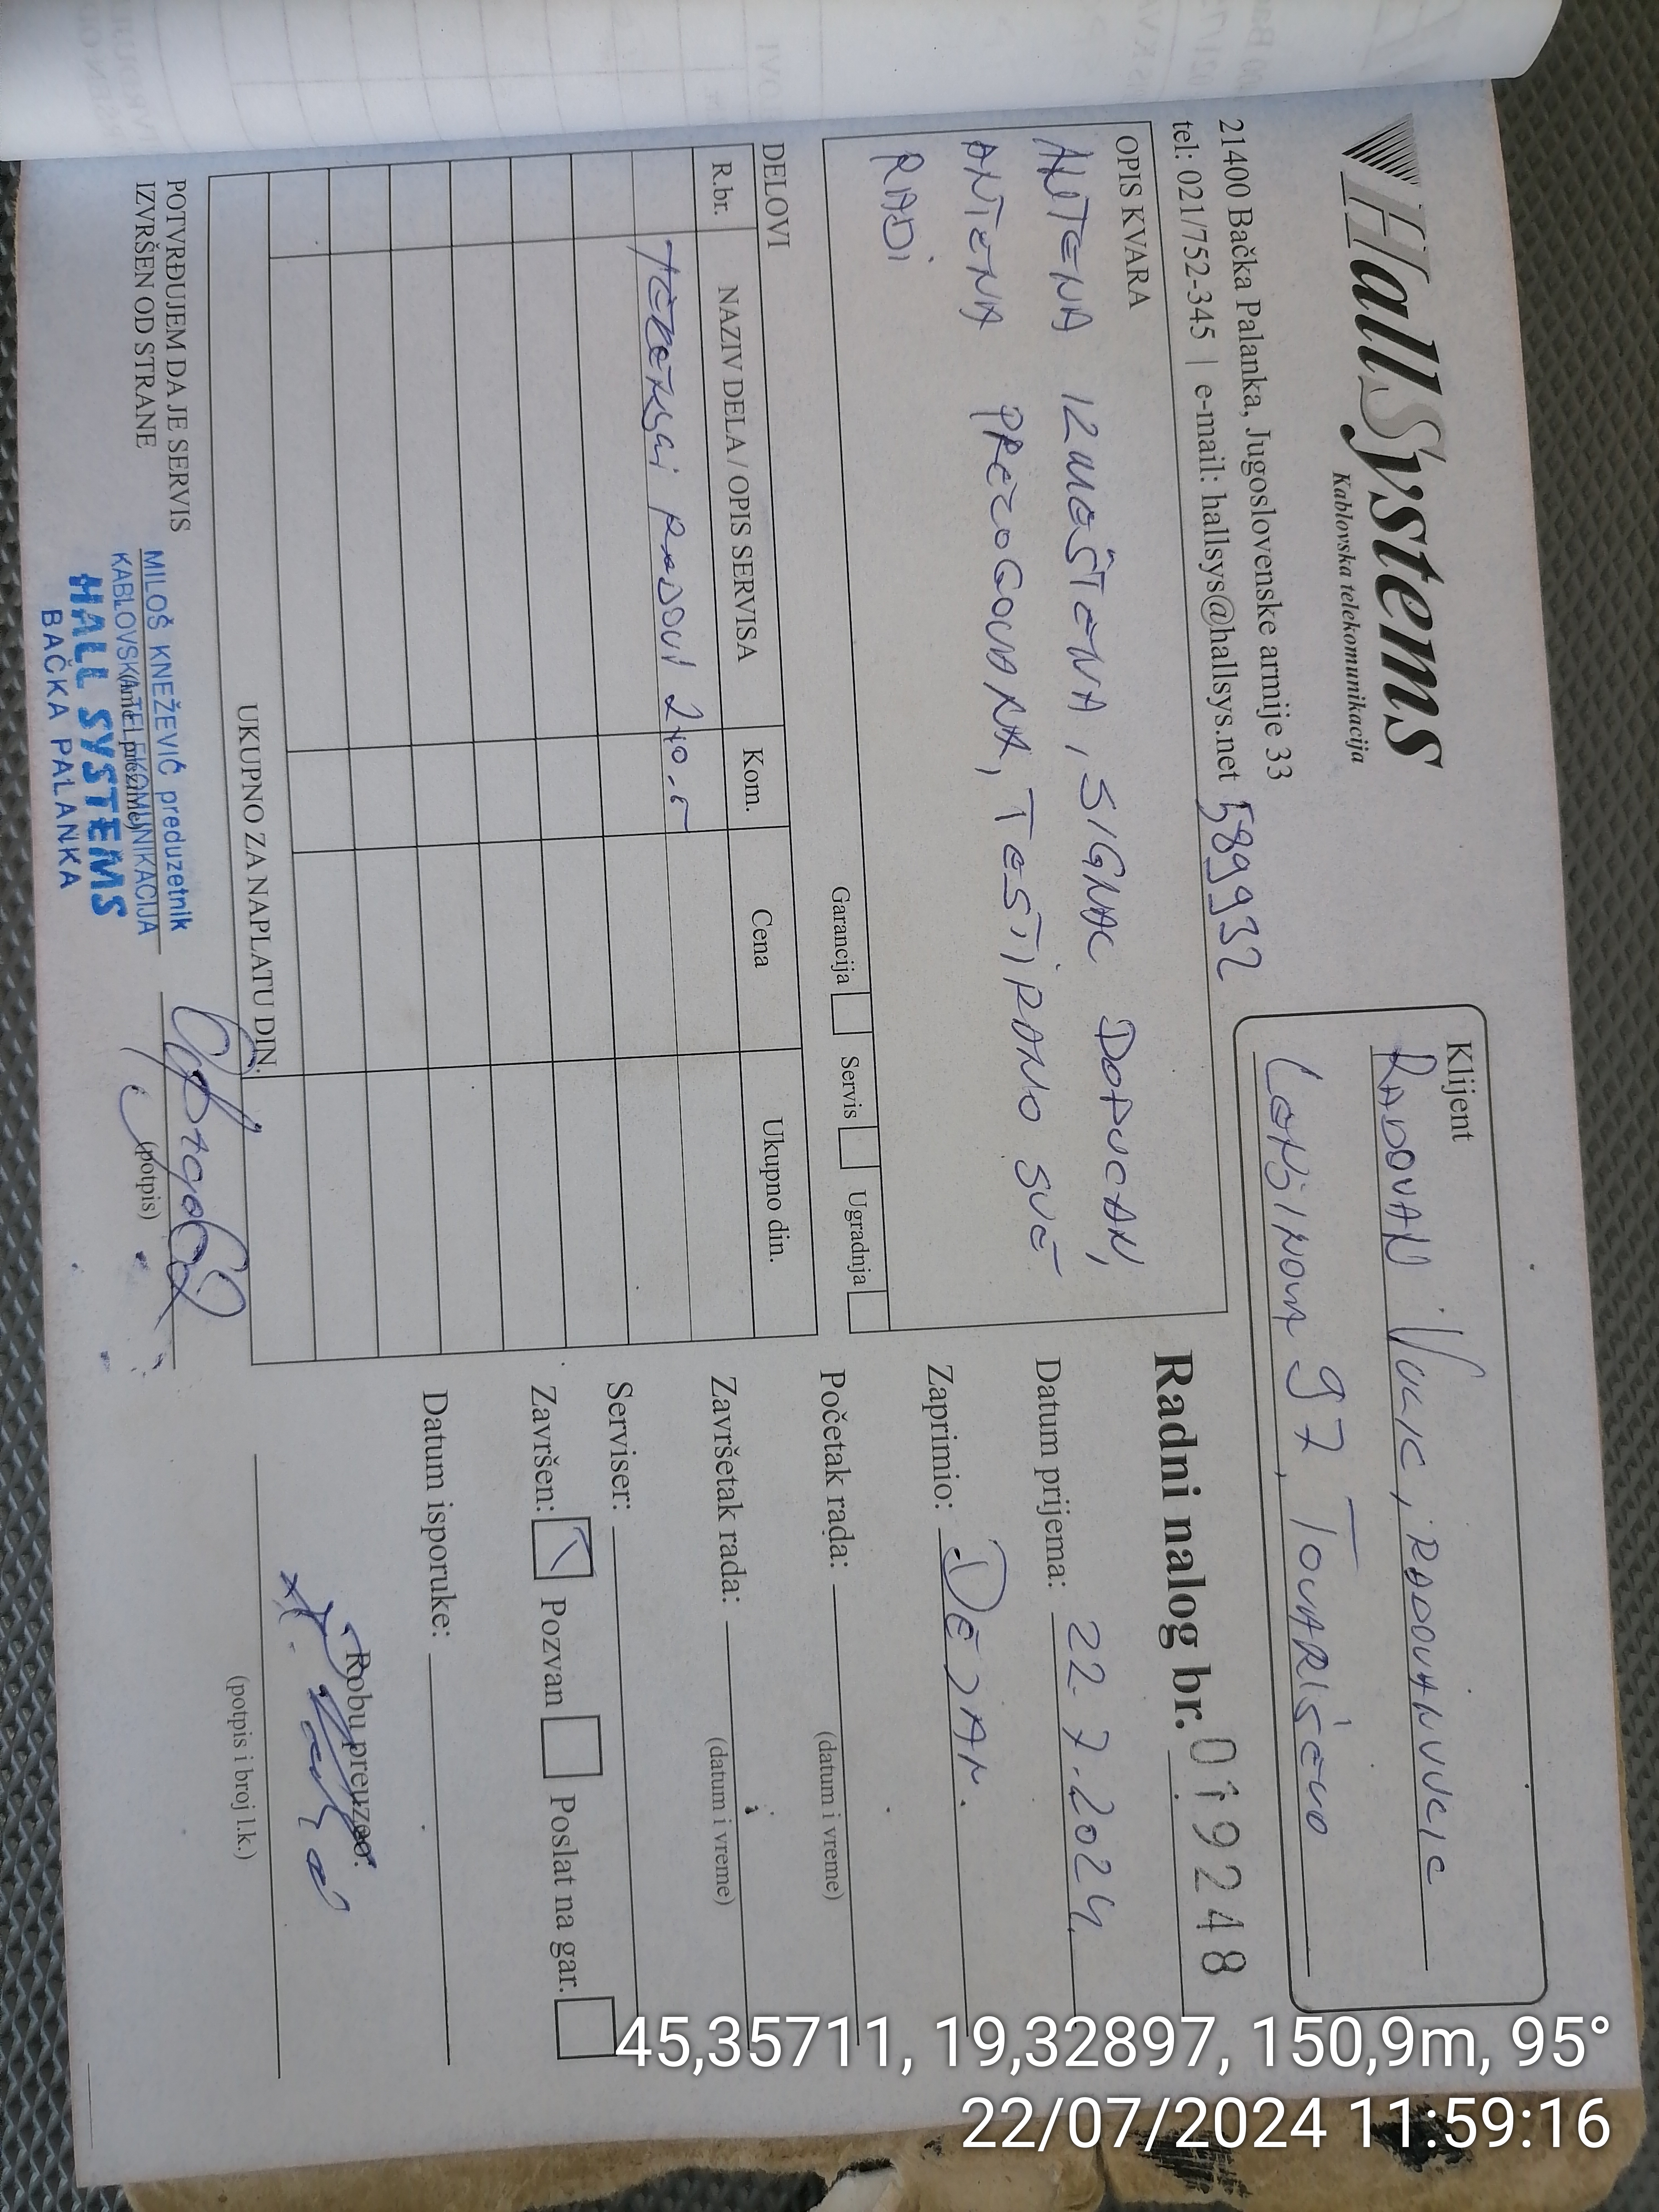 HallSystems
Kablovska telekomunikacija
21400 Bačka Palanka, Jugoslovenske armije 33
tel: 021/752-345 | e-mail: hallsys@hallsys.net 589932
Klijent
RADOVAN VUCIC, RADOVANVUCIC
97, TOVARIŠEVO
OPIS KVARA
ANTENA IZMEŠTENA, SIGNAL DOPUCAN,
ANTENA PREZOGOVANA, TESTIRANO SVE
RADI
Garancija Servis Ugradnja
Radni nalog br. 019248
Datum prijema: 22.7.2024.
Zaprimio: DEJAN.
Početak rada:
(datum i vreme)
Završetak rada:
(datum i vreme)
Serviser:
Završen: Pozvan Poslat na gar.
Datum isporuke:
Robu preuzeo:
(potpis i broj l.k.)
DELOVI
R.br. NAZIV DELA / OPIS SERVISA Kom. Cena Ukupno din.
UKUPNO ZA NAPLATU DIN.
POTVRĐUJEM DA JE SERVIS
IZVRŠEN OD STRANE
(ime i prezime)
(potpis)
MILOŠ KNEŽEVIĆ preduzetnik
KABLOVSKA TELEKOMUNIKACIJA
HALL SYSTEMS
BAČKA PALANKA
45,35711, 19,32897, 150,9m, 95°
22/07/2024 11:59:16